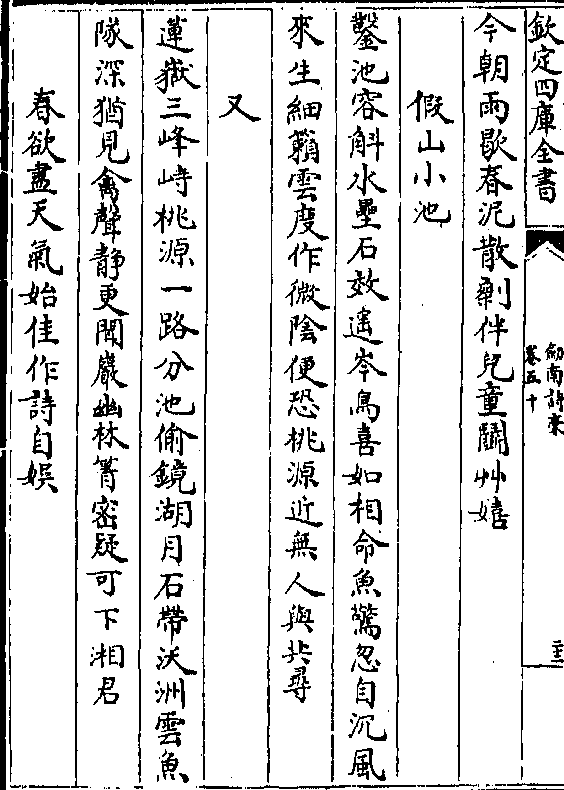 欽定四庫全書
劒南詩稾
卷五十
今朝雨歇春泥散剩伴兒童鬭艸嬉
假山小池
鑿池容斛水壘石效遥岑鳥喜如相命魚驚忽自沉風
來生細籟雲度作微陰便恐桃源近無人與共尋
又
蓮嶽三峰峙桃源一路分池偷鏡湖月石帶沃洲雲魚
隊深猶見禽聲静更聞巖幽林箐密疑可下湘君
春欲盡天氣始佳作詩自娯